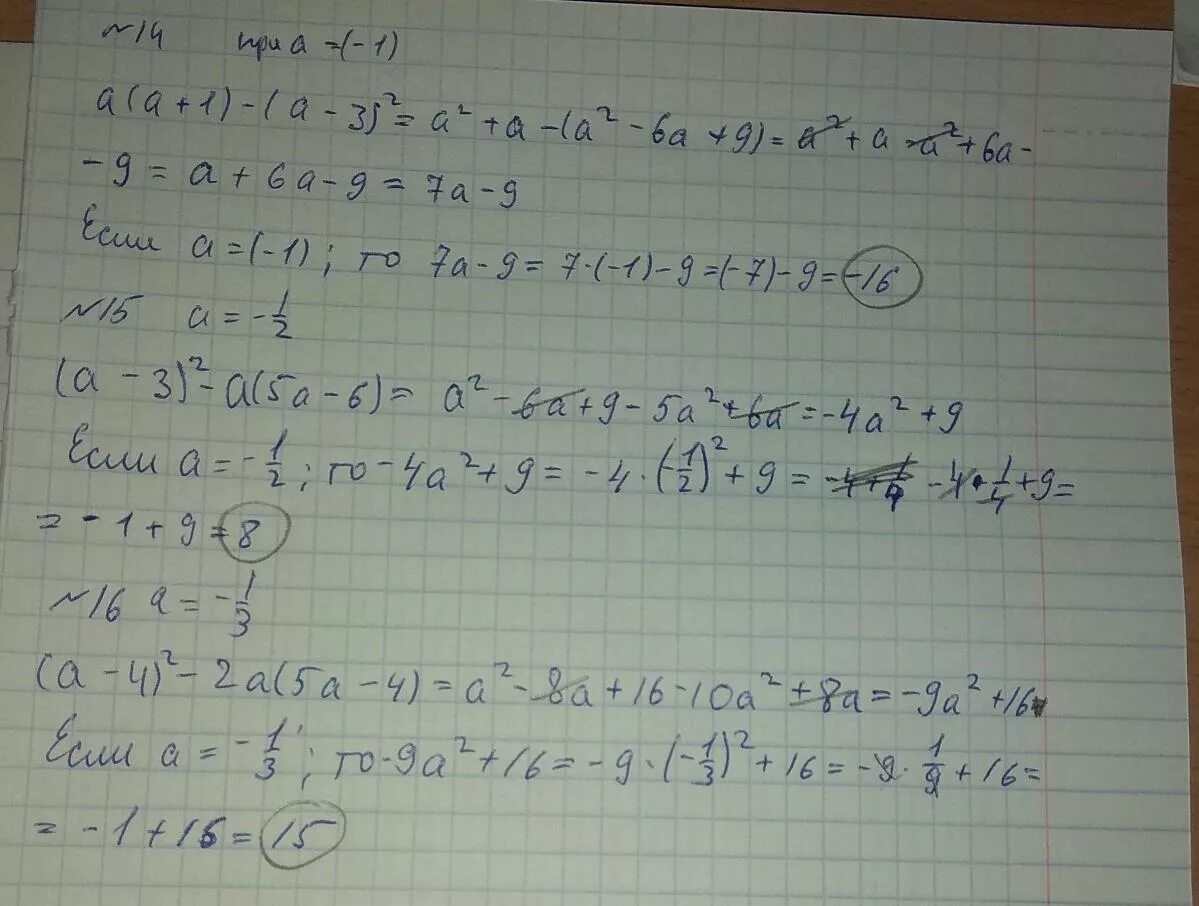 №14 при a = (-1)
a(a + 1) - (a - 3)² = a² + a - (a² - 6a + 9) = a² + a - a² + 6a -
- 9 = a + 6a - 9 = 7a - 9
Если a = (-1); то 7a - 9 = 7·(-1) - 9 = (-7) - 9 = -16
№15 a = -1/2
(a - 3)² - a(5a - 6) = a² - 6a + 9 - 5a² + 6a = -4a² + 9
Если a = -1/2; то -4a² + 9 = -4·(-1/2)² + 9 = -4·1/4 + 9 =
= -1 + 9 = 8
№16 a = -1/3
(a - 4)² - 2a(5a - 4) = a² - 8a + 16 - 10a² + 8a = -9a² + 16
Если a = -1/3; то -9a² + 16 = -9·(-1/3)² + 16 = -9·1/9 + 16 =
= -1 + 16 = 15